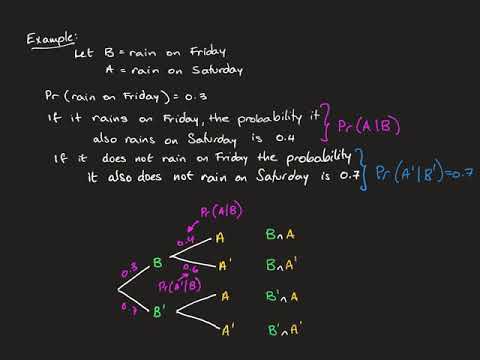 Example:
Let B = rain on Friday
A = rain on Saturday
Pr (rain on Friday) = 0.3
If it rains on Friday, the probability it
also rains on Saturday is 0.4
Pr(A|B)
If it does not rain on Friday the probability
it also does not rain on Saturday is 0.7
Pr(A'|B') = 0.7
Pr(A|B)
0.4 A B∩A
0.3 B
0.6 A' B∩A'
Pr(A'|B)
A B'∩A
0.7 B'
A' B'∩A'